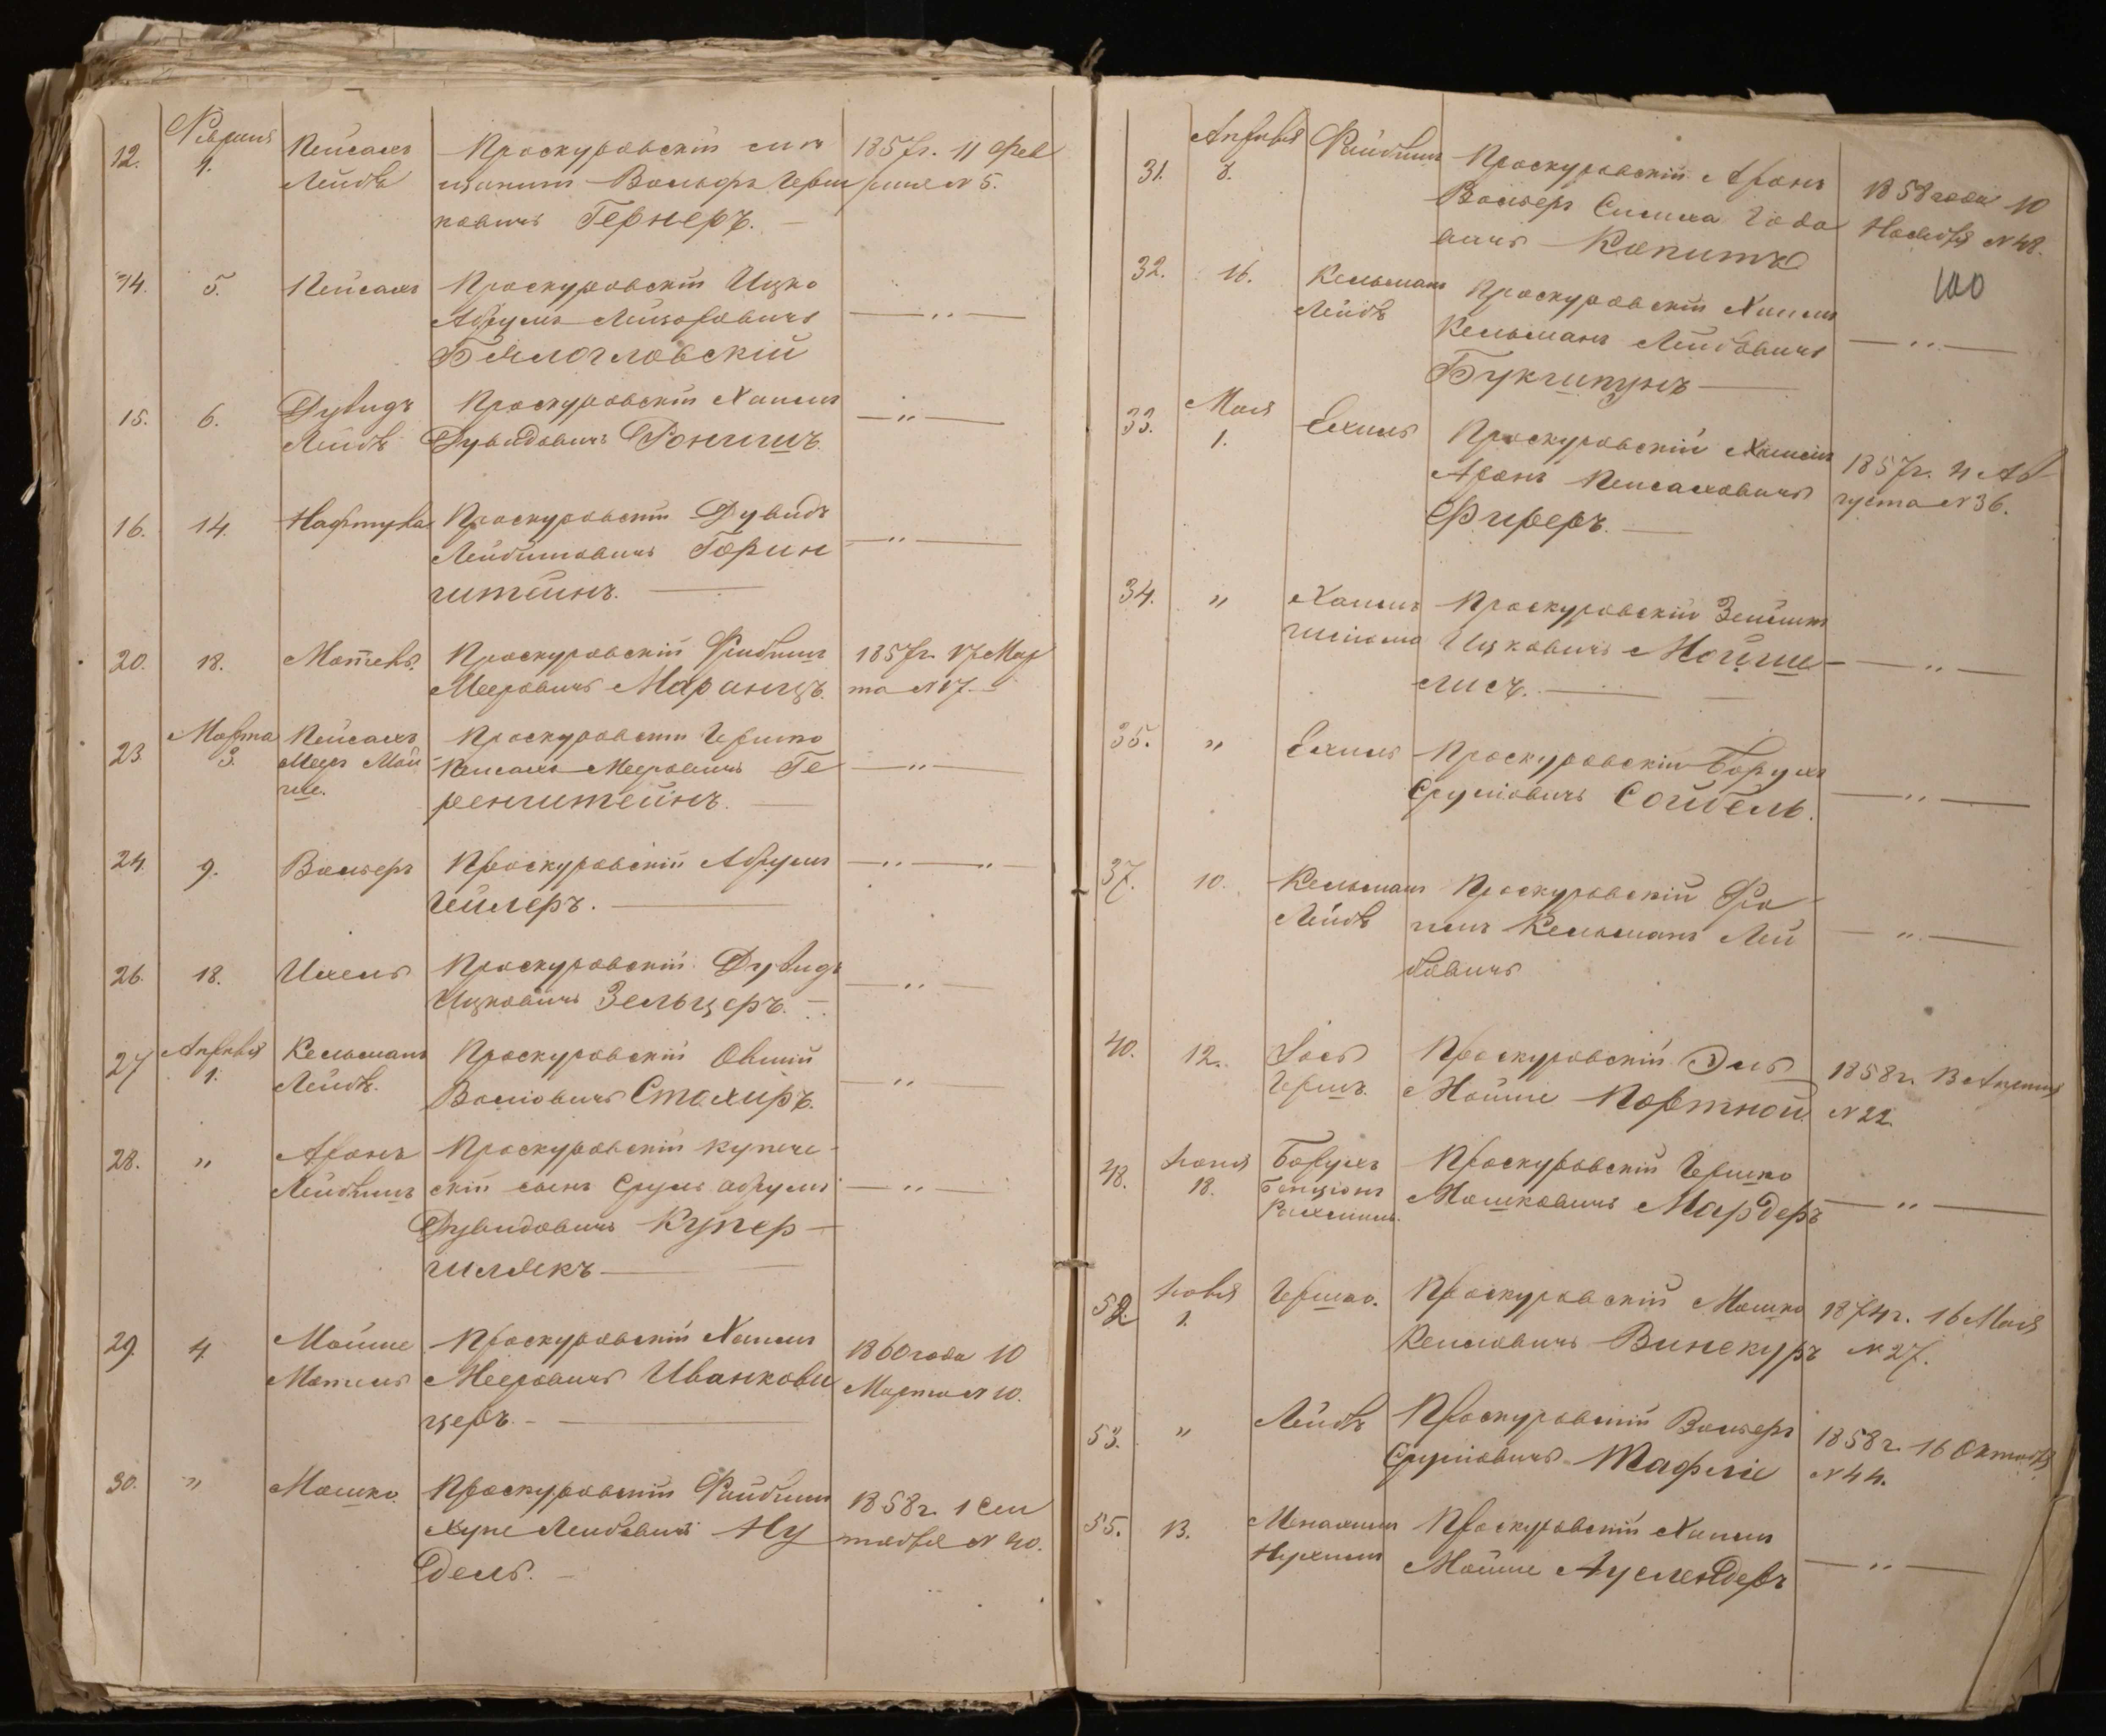 12. Февраля 4. Пейсахъ Лейбъ
Проскуровскій
Вольфъ Герш
ковичъ Гернеръ.
1857г. 11 Фев
раля N 5.
14. 5. Пейсахъ
Проскуровскій Ицко
Абрумъ Лейзоровичъ
Бялогловскій
— " —
15. 6. Дувидъ Лейбъ
Проскуровскій Хаимъ
Дувидовичъ Ронишъ.
— " —
16. 14. Нафтула
Проскуровскій Дувидъ
Лейбишовичъ Горин
штейнъ.
— " —
20. 18. Мотель.
Проскуровскій Фибишъ
Мееровичъ Маранцъ.
1857г. 17 Мар
та N 17.
23. Марта 3. Пейсахъ Мееръ Мой
ше.
Проскуровскій Гершко
Пейсахъ Мееровичъ Ге
ренштейнъ.
— " —
24. 9. Вольфъ
Проскуровскій Абрумъ
Гейлеръ.
— " — " —
26. 18. Ихель
Проскуровскій Дувидъ
Ицковичъ Зельцеръ.
— " —
27 Апреля 1. Кельманъ Лейбъ.
Проскуровскій Овшій
Волковичъ Столиръ.
— " —
28. " Аронъ Лейбишъ
Проскуровскій купече
скій сынъ Сруль Абрумъ
Дувидовичъ Купер
шлякъ
— " —
29. 4. Мойше Мотель
Проскуровскій Хаимъ
Мееровичъ Иванкови
церъ.
1860 года 10
Марта N 10.
30. " Мошко.
Проскуровскій Файбишъ
Лейбовичъ Ну
дель.
1858г. 1 Сен
тября N 40.
31. Апреля 8. Файбишъ
Проскуровскій Аронъ
Вольфъ Симха Годо
вичъ Копитъ
1858 года 10
Ноября N 48.
100
32. 16. Кельманъ Лейбъ
Проскуровскій Хаимъ
Кельманъ Лейбовичъ
Букшпунъ
— " —
33. Мая 1. Ехиль
Проскуровскій Хаимъ
Аронъ Пейсаховичъ
Фиреръ.
1857г. 4 Ав
густа N 36.
34. " Хаимъ Шліома
Проскуровскій Зейликъ
Ицковичъ Мойше
лисъ.
— " —
35. " Ехиль
Проскуровскій Борухъ
Сруліовичъ Сойбель.
— " —
37. 10. Кельманъ Лейбъ
Проскуровскій Фро
имъ Кельманъ Лей
бовичъ
— " —
40. 12. Іось Гершъ.
Проскуровскій Эль
Мойше Портной.
1858г. 13 Апреля
N 22.
48. Іюня 18. Борухъ Бенціонъ
Рахмиль.
Проскуровскій Гершко
Мошковичъ Мардеръ
— " —
52. Іюля 1. Гершко.
Проскуровскій Мошко
Винокуръ
1874г. 16 Мая
N 27.
53. " Лейбъ
Проскуровскій Вольфъ
Сруліовичъ Тафліе
1858г. 16 Октября
N 44.
55. 13. Менахимъ Нухимъ
Проскуровскій Хаимъ
Мойше Ауслендеръ
— " —